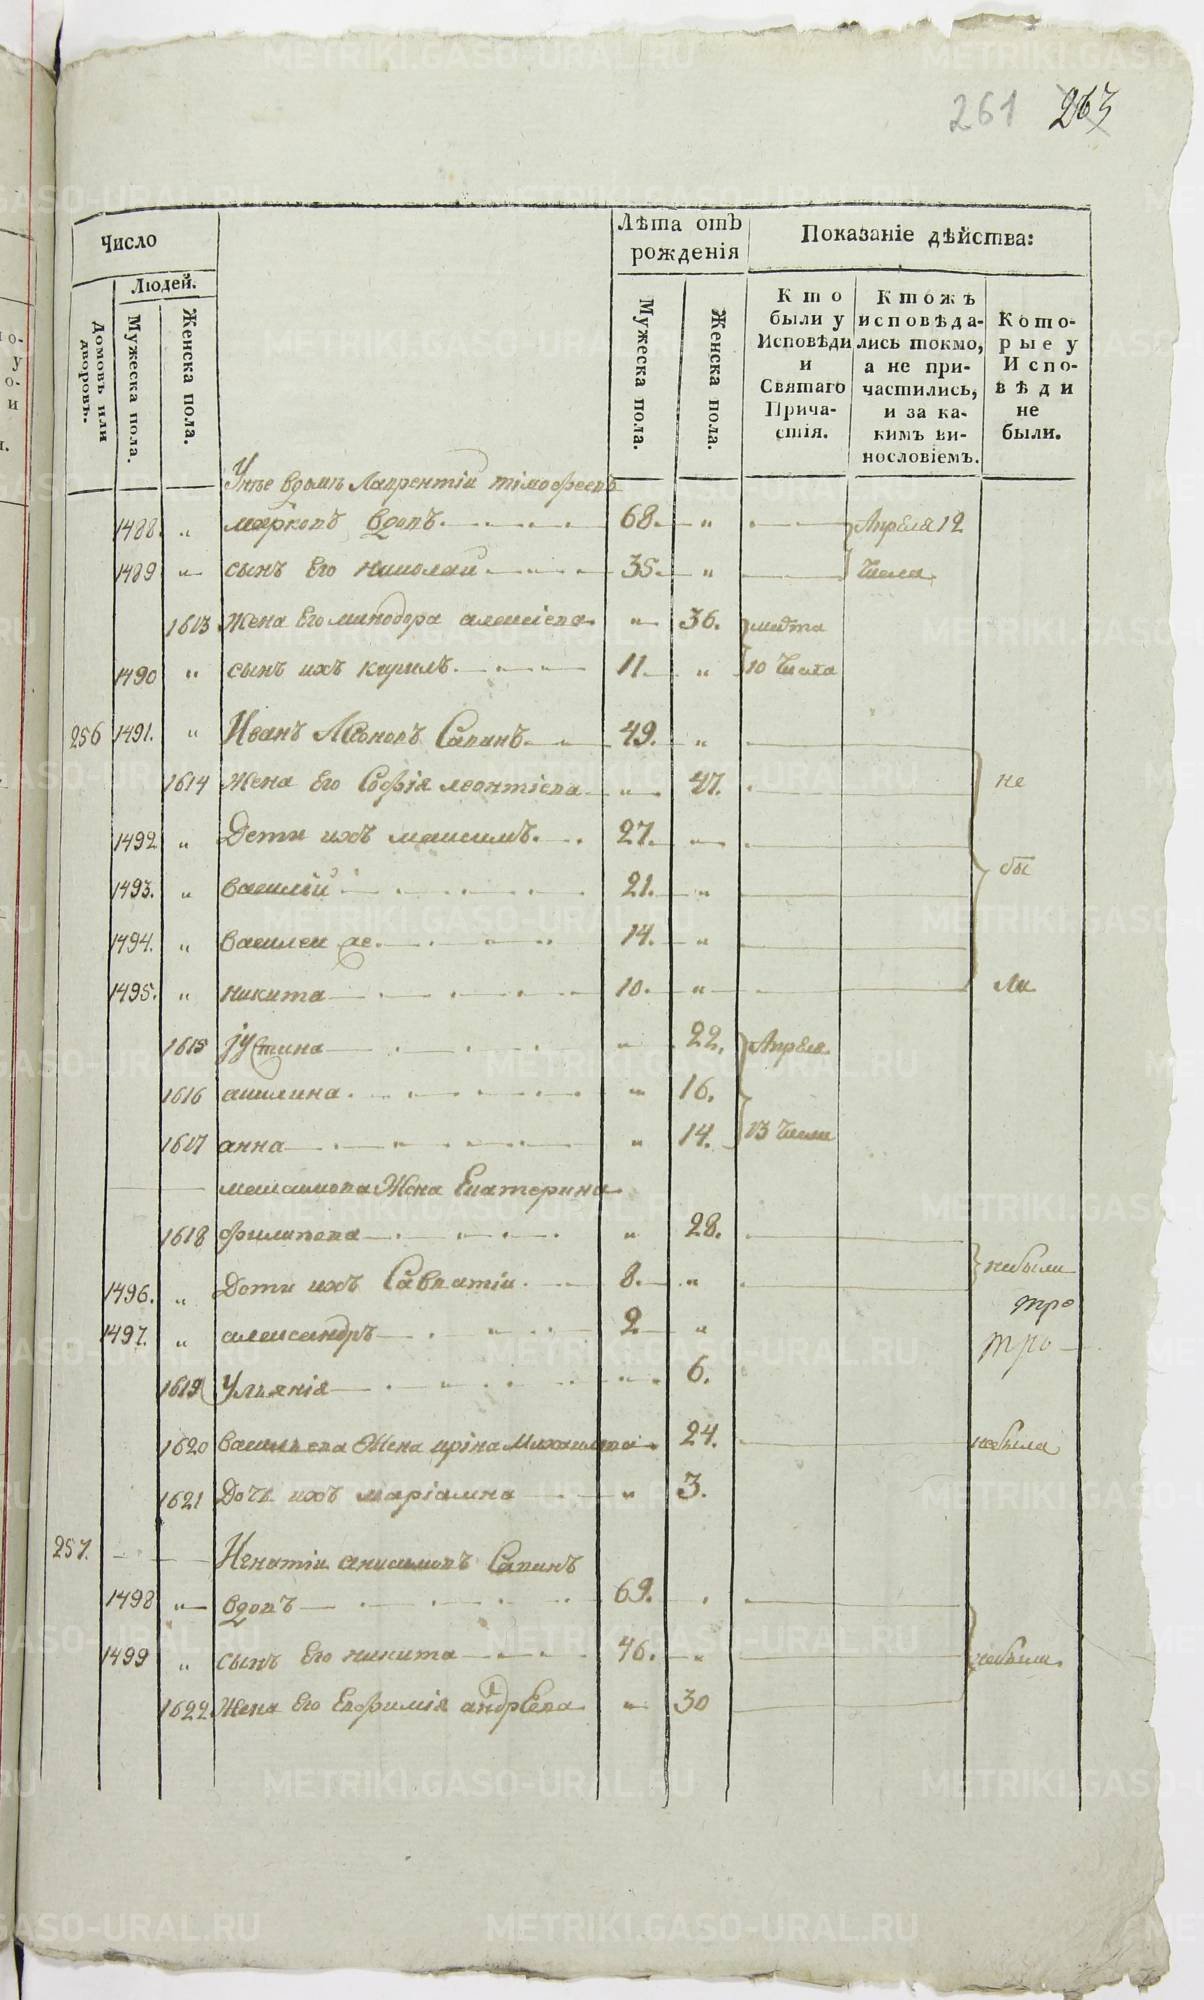 261 263
Число
Лѣта отъ рожденія
Показаніе дѣйства:
Людей.
Домовъ или дворовъ.
Мужеска пола.
Женска пола.
Мужеска пола.
Женска пола.
Кто были у Исповѣди и Святаго Причастія.
Ктожъ исповѣдались токмо, а не причастились, и за какимъ винословіемъ.
Которые у Исповѣди не были.
Унѣе вдомъ Лаврентіи тімофеевъ
1488. „ марковъ вдовъ. 68. „ Апреля 12
1489 „ сынъ Его николаи 35. „ Числа
1613 Жена Его минодора алексіева „ 36. марта
1490 „ сынъ ихъ кирилъ 11. „ 10 Числа
256 1491. „ Иванъ Леоновъ Сапинъ 49. „
1614 Жена Его Софія леонтіева „ 47. не
1492 „ Дети ихъ максимъ. 27. „
1493. „ василіи 21. „ бы
1494. „ василеи же. 14. „
1495. „ никита 10. „ ли
1615 јустина „ 22. Апреля
1616 акилина. „ 16.
1617 анна „ 14. 13 Числа
максимова Жена Екатерина
1618 филипева „ 28.
1496. „ Дети ихъ Савватіи 8. „ небыли
1497. „ александръ 2 „
1619 Ульянія „ 6.
1620 васильева Жена иріна Михаилова „ 24. небыла
1621 Дочь ихъ маріамна „ 3.
257. Игнатіи анисимовъ Сапинъ
1498 „ вдовъ 69.
1499 „ сынъ Его никита 46. „ небыли.
1622 Жена Его Евфимія андреева „ 30
METRIKI.GASO-URAL.RU